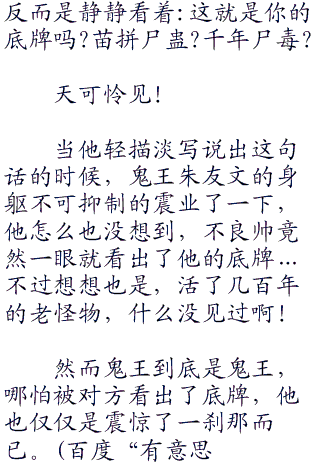 反而是静静看着:这就是你的
底牌吗?苗拼尸蛊?千年尸毒?
天可怜见!
当他轻描淡写说出这句
话的时候，鬼王朱友文的身
躯不可抑制的震业了一下，
他怎么也没想到，不良帅竟
然一眼就看出了他的底牌…
不过想想也是，活了几百年
的老怪物，什么没见过啊!
然而鬼王到底是鬼王，
哪怕被对方看出了底牌，他
也仅仅是震惊了一刹那而
已。(百度“有意思